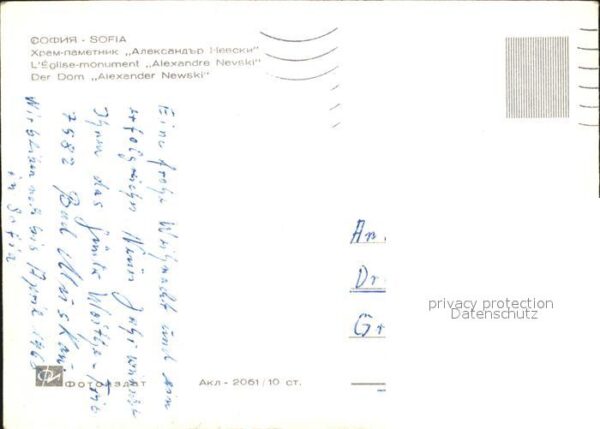 СОФИЯ - SOFIA
Храм-паметник „Александър Невски"
L'Église-monument „Alexandre Nevski"
Der Dom „Alexander Newski"
Eine frohe Weihnacht und ein
erfolgreiches Neues Jahr wünscht
Ihnen das
7582 Bad Muskau
Wir bleiben noch bis April 1969
in Sofia
An
Dr
Gr
privacy protection
Datenschutz
Фотоиздат Акл - 2061/10 ст.